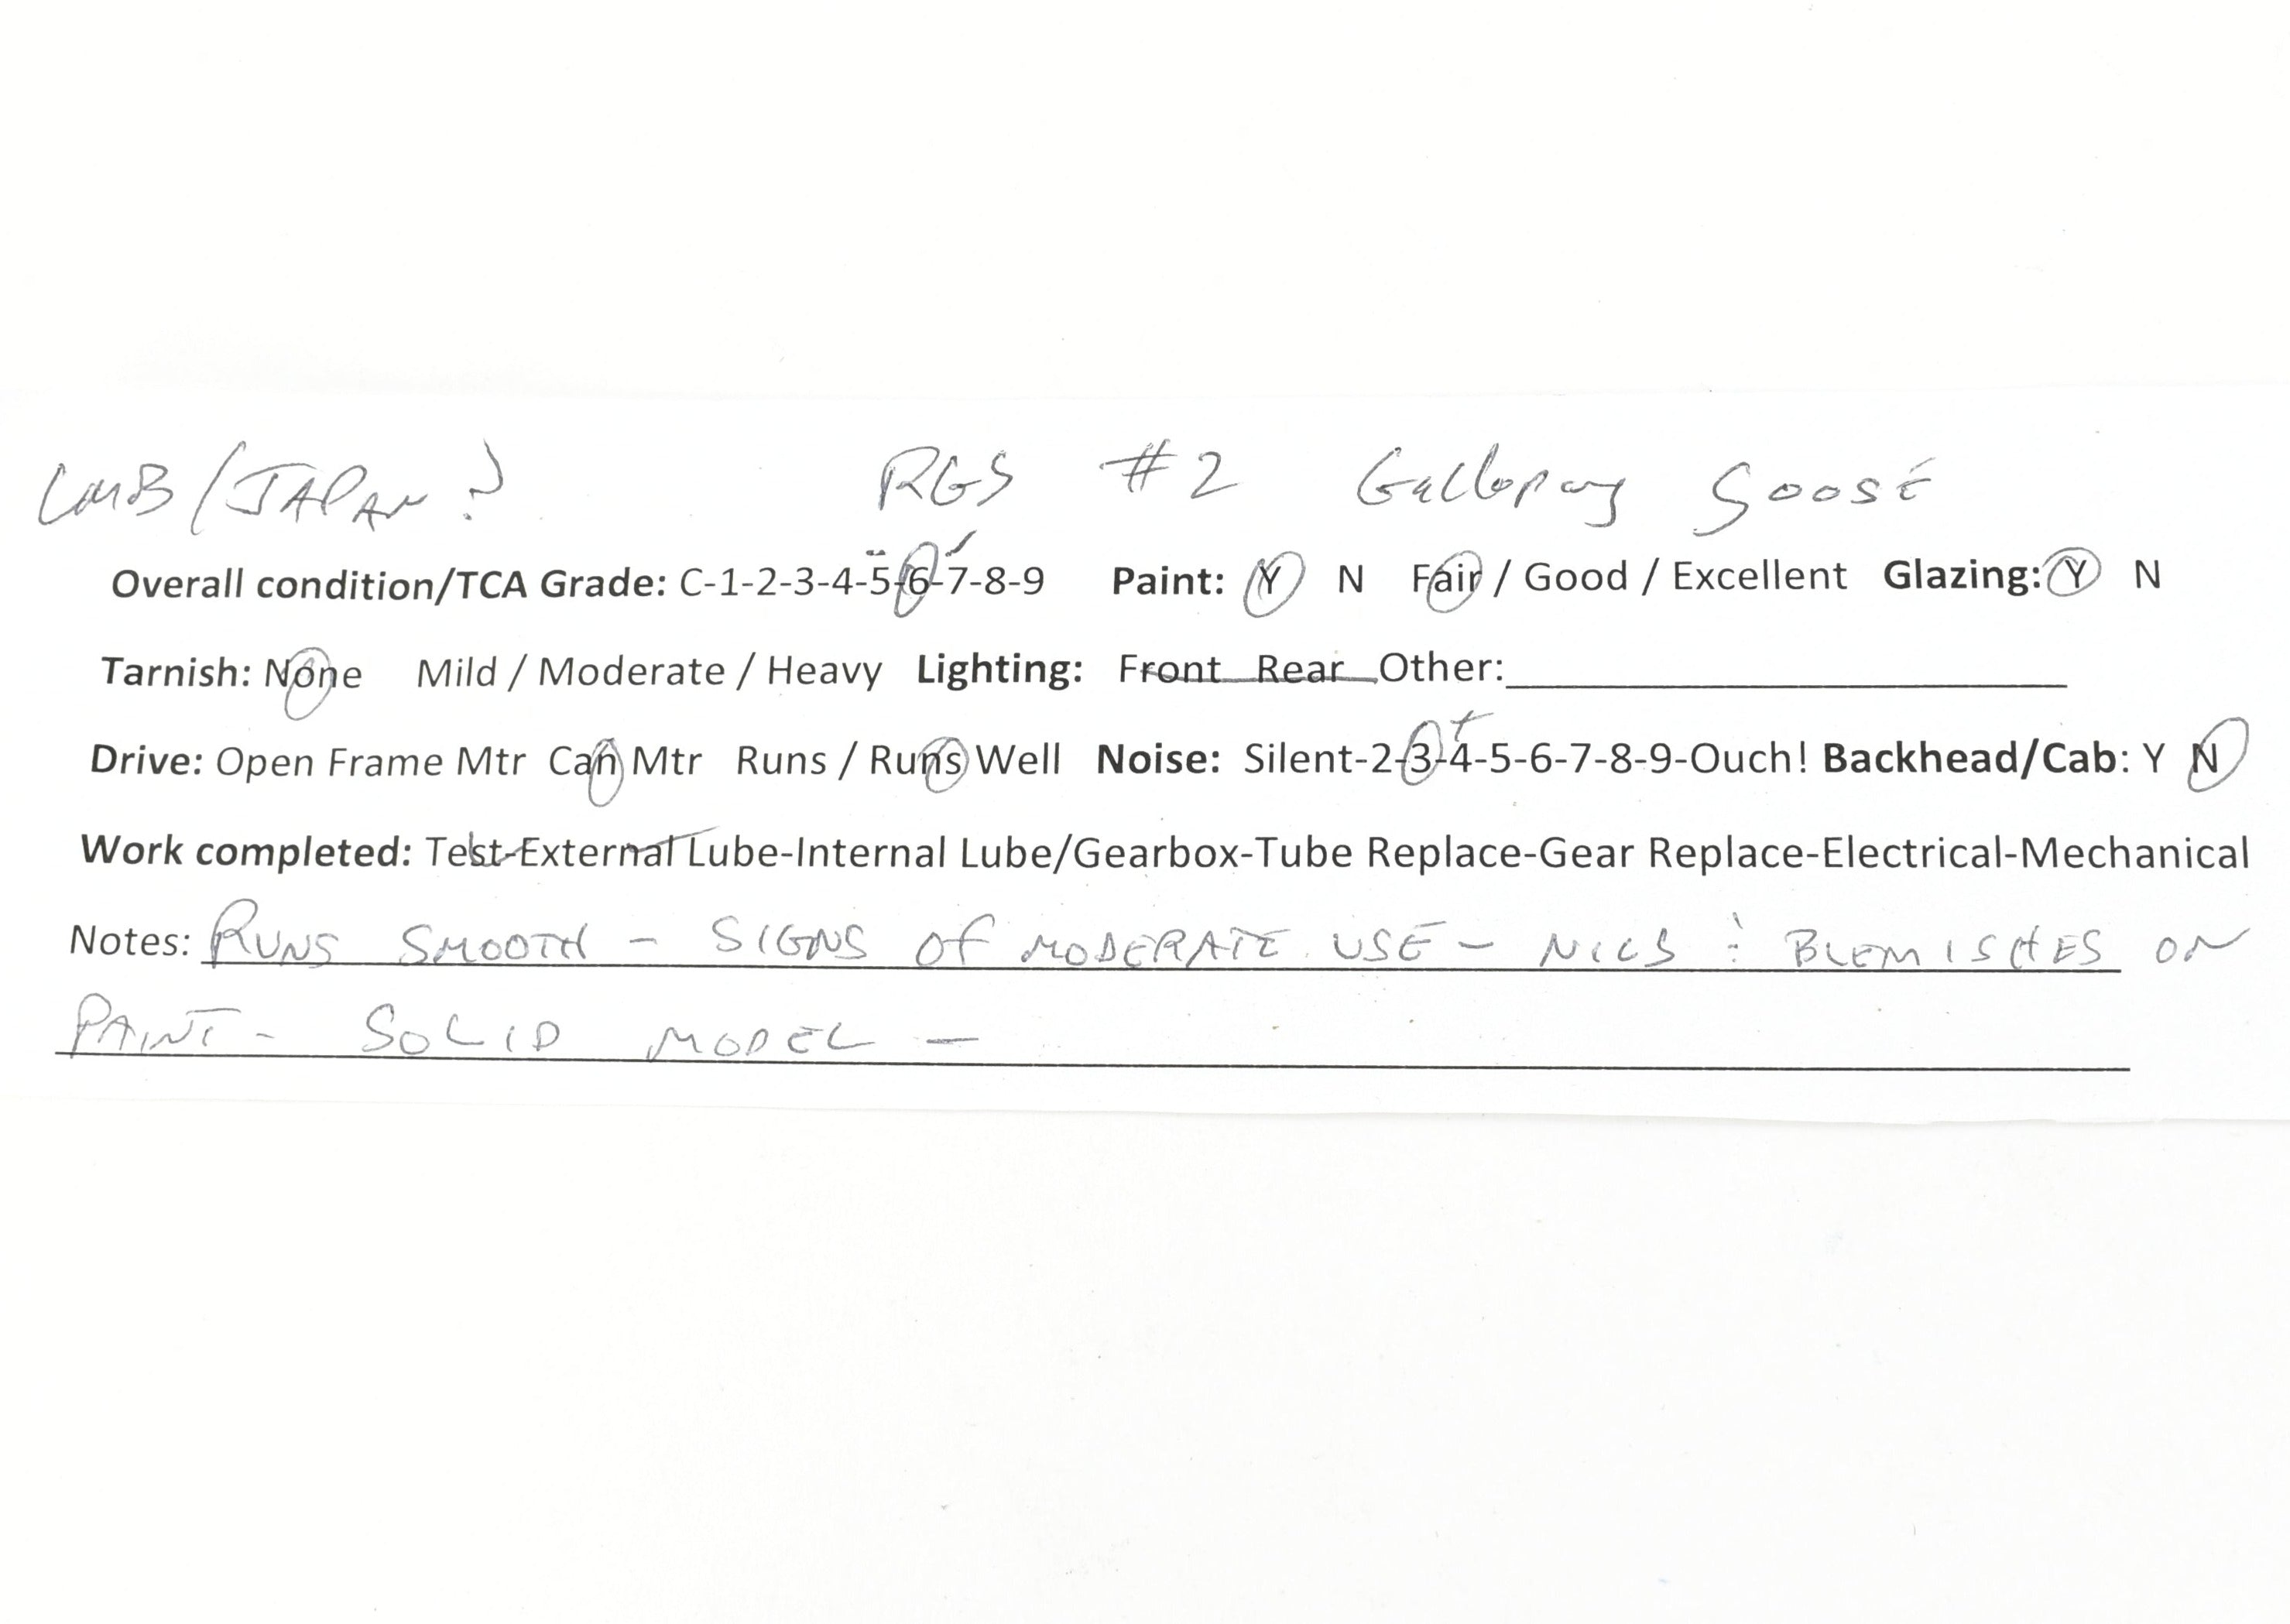 LMB/JAPAN? RGS #2 Galloping Goose
Overall condition/TCA Grade: C-1-2-3-4-5-6-7-8-9 Paint: Y N Fair / Good / Excellent Glazing: Y N
Tarnish: None Mild / Moderate / Heavy Lighting: Front Rear Other:
Drive: Open Frame Mtr Can Mtr Runs / Runs Well Noise: Silent-2-3-4-5-6-7-8-9-Ouch! Backhead/Cab: Y N
Work completed: Test-External Lube-Internal Lube/Gearbox-Tube Replace-Gear Replace-Electrical-Mechanical
Notes: RUNS SMOOTH - SIGNS OF MODERATE USE - NICS & BLEMISHES ON
PAINT - SOLID MODEL -